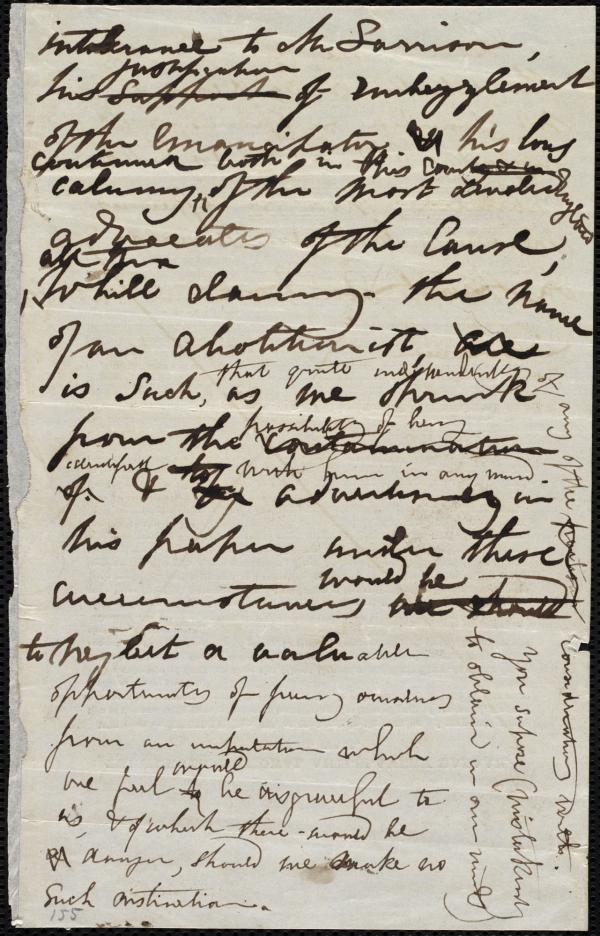 intolerance to Mr Garrison,
justification
his support of embezzlement
of the Emancipator, his long
continued both in this country & in England
calumny, of the most devoted
advocates of the Cause,
all the
while claiming the name
of an abolitionist are
is such, that quite independently
as we shrink
possibility of being
from the contamination
with him in any mind
of & advertising in
his paper under these
would be
circumstances we should
to neglect a valuable
opportunity of freeing ourselves
from an imputation which
would
we feel to be disgraceful to
us, & of which there would be
danger, should we make no
such distinction.
155
of any of the
considerations with.
you suppose (mistakenly
to obtain in our minds